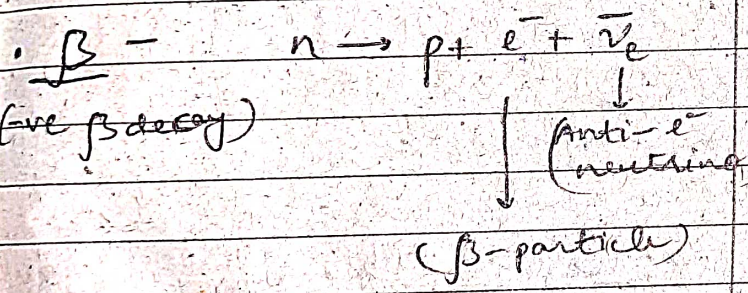 . β - n → p + e⁻ + ν̄ₑ
(-ve β decay)
(Anti-e⁻
neutrino
(β-particle)